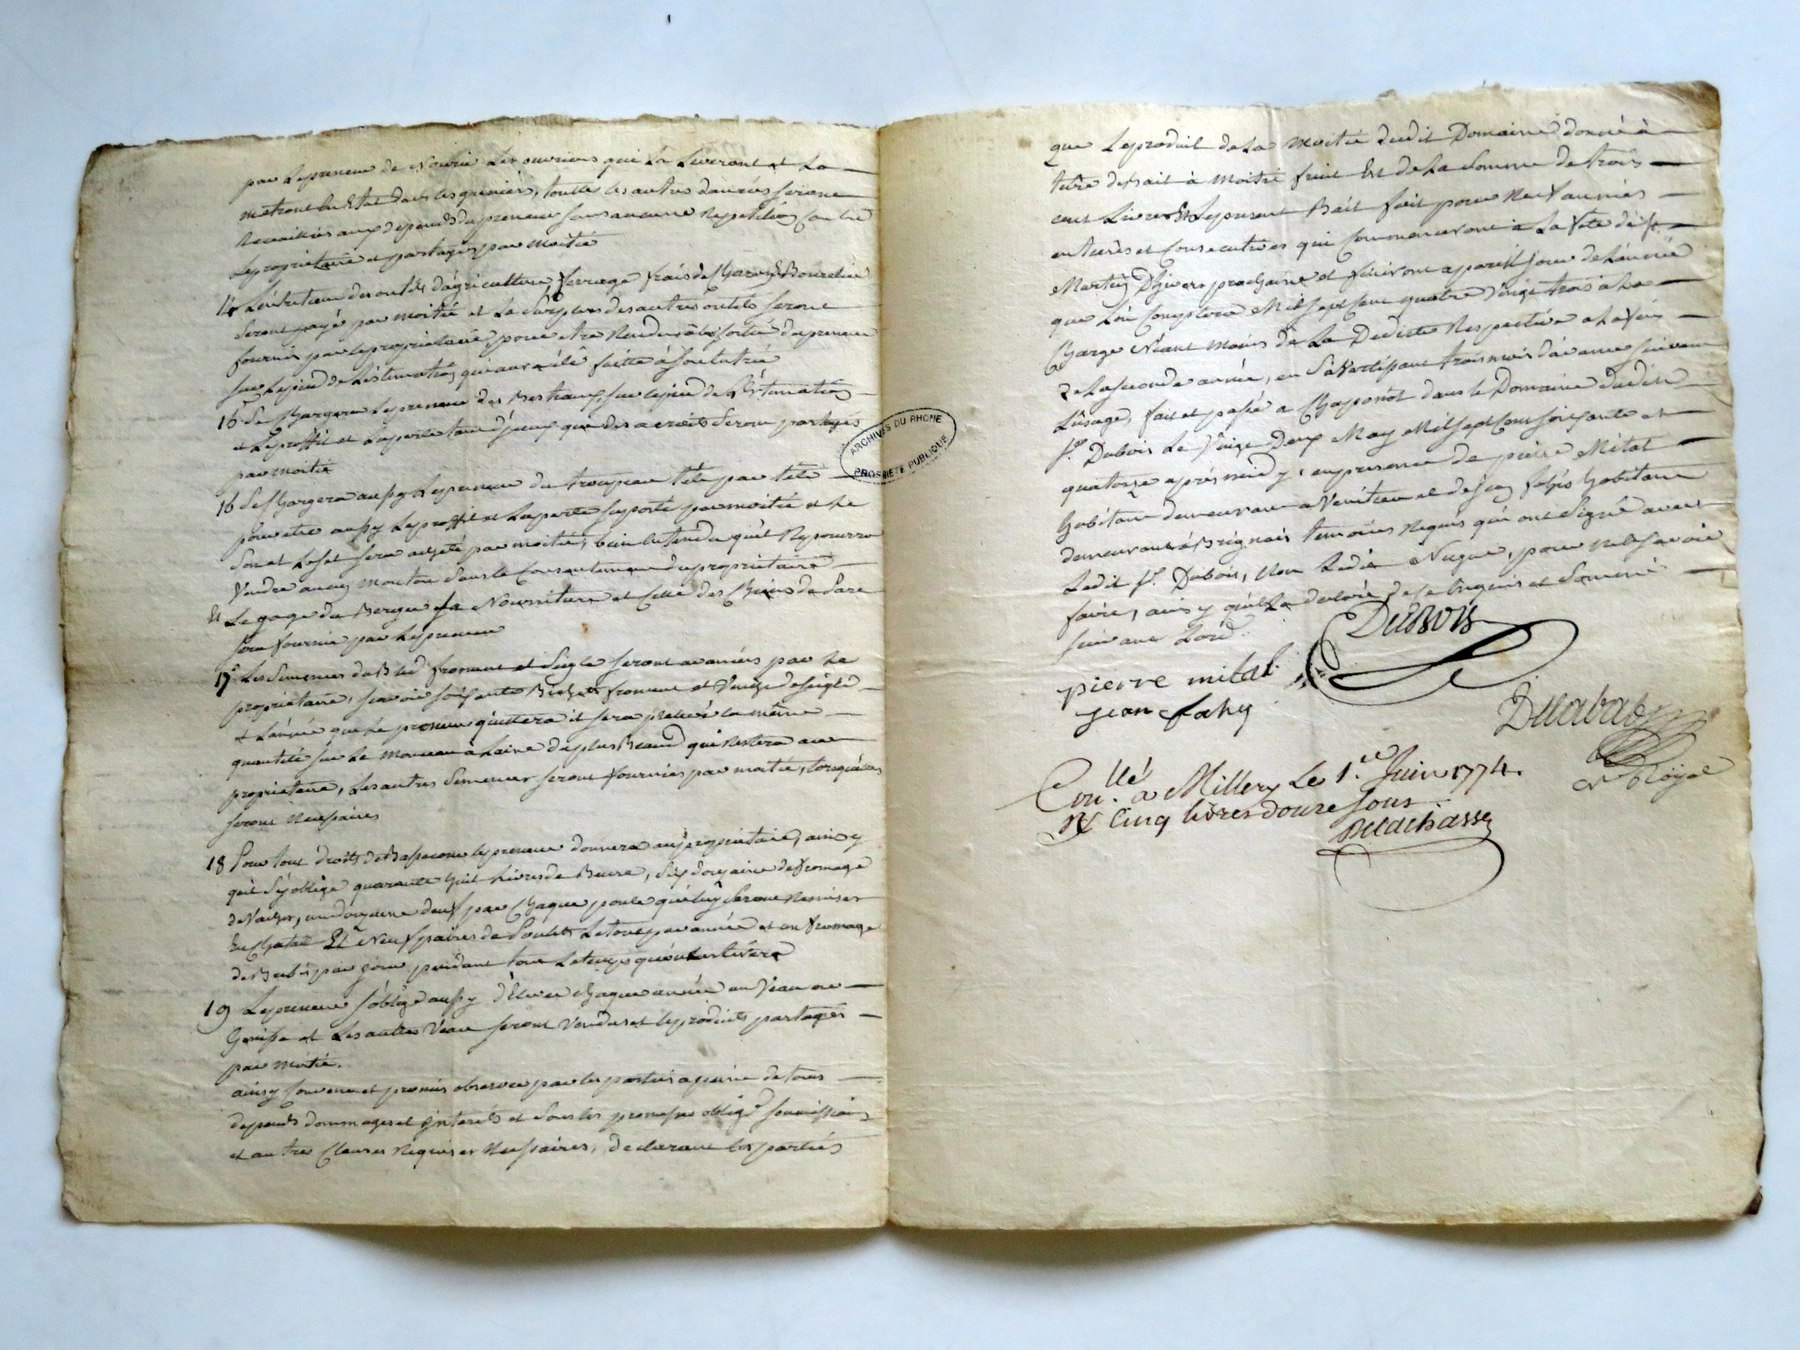 par le preneur de Nourir les ouvriers qui la leveront et la
metront en Etat dans les greniers, touttes les autres danrées seront
Recueillies aux depends du preneur sans aucune Repetition contre
le propriétaire et partagés par moitié
14 L'entretien des outils d'agriculture, ferrage frais de Charon, Bourelier
seront payé par moitié et le surplus des autres outils seront
fournis par le propriétaire, pour etre Rendus à la sortie du preneur
sur le pied de l'estimation, qui aura été faitte à son entrée
15 Se Chargera le preneur des Bestiaux, sur le pied de l'estimation
et le proffit et la perte tant d'yceux que des acroits seront partagés
par moitié
16 Se Chargera aussy le preneur du troupeau tête par tête
pour etre aussy le proffit et la perte suporté par moitié et le
Son et le sel sera acheté par moitié, bien entendu qu'il Ne pourra
Vendre aucun mouton sans le Consentement du propriétaire
et Le gage du Berger sa Nourriture et Celle des Chiens de Parc
sera fournie par le preneur
17 Les Semences de Bled froment et Seigle seront avancées par le
propriétaire, scavoir soixante Bichets froment et de seigle
et l'année que le preneur quittera il sera prelevé la même
quantité sur le monceau à l'aire du plus Beau qui Restera au
propriétaire, Les autres Semences seront fournies par moitié, lorsqu'elles
seront Necessaires
18 Pour tout droits de Bassecour le preneur donnera au propriétaire, ainsy
qu'il s'y oblige quarante huit Livres de Beure, Six douzaine de fromage
de Vaches, une douzaine d'œufs par Chaque poule qui luy seront Remises
En Chatal Et Neuf paires de Poulets Le tout par année et un fromage
de Brebis par jour pendant tout le temps qu'on les tirera
19 Le preneur s'oblige aussy d'Elever Chaque année un Veau ou
Genisse et Les autres Veau seront Vendus et le produits partagés
par moitié.
ainsy Convenu et promis observer par les parties a peine de tous
depends dommages et interets et sous les promesses oblig.s soumissions
et autres Clauses Requises Necessaires, declarant les parties
que le produit de La moitié dudit Domaine donné à
titre de Bail à moitié fruit Est de la somme de trois
cent Livres Et le present Bail fait pour Neuf années
entieres et Consecutives qui Commenceront à La fete de St.
Martin D'hivers prochaine et finiront a pareil jour de L'année
que L'on Comptera Mil Sept Cent quatre Vingt trois à la
Charge Néant moins de La Deditte Respective a la fin
de la seconde année, en s'avertissant trois mois d'avance suivant
L'usage, fait et passé a Chaponôt dans le Domaine dudit
Sr. Dubois Le Vingt deux May Mil Sept Cent Soixante et
quatorze après midy, en presence de pierre Mital
habitant demeurant a Venitieu et de Jean fahy habitant
demeurant à Brignais temoins Requis qui ont Signé avec
Ledit Sr. Dubois, Non Ledit Nugue, pour ne le savoir
faire, ainsy qu'il l'a declaré de ce Enquis et Sommé
suivant L'ord.
DUBOIS
pierre mital
jean fahy
Delabat
Nre Royal
Con.llé a Millery Le 1.er Juin 1774.
Rx Cinq livres douze sous
Delachassey
ARCHIVES DU RHONE
PROPRIETE PUBLIQUE